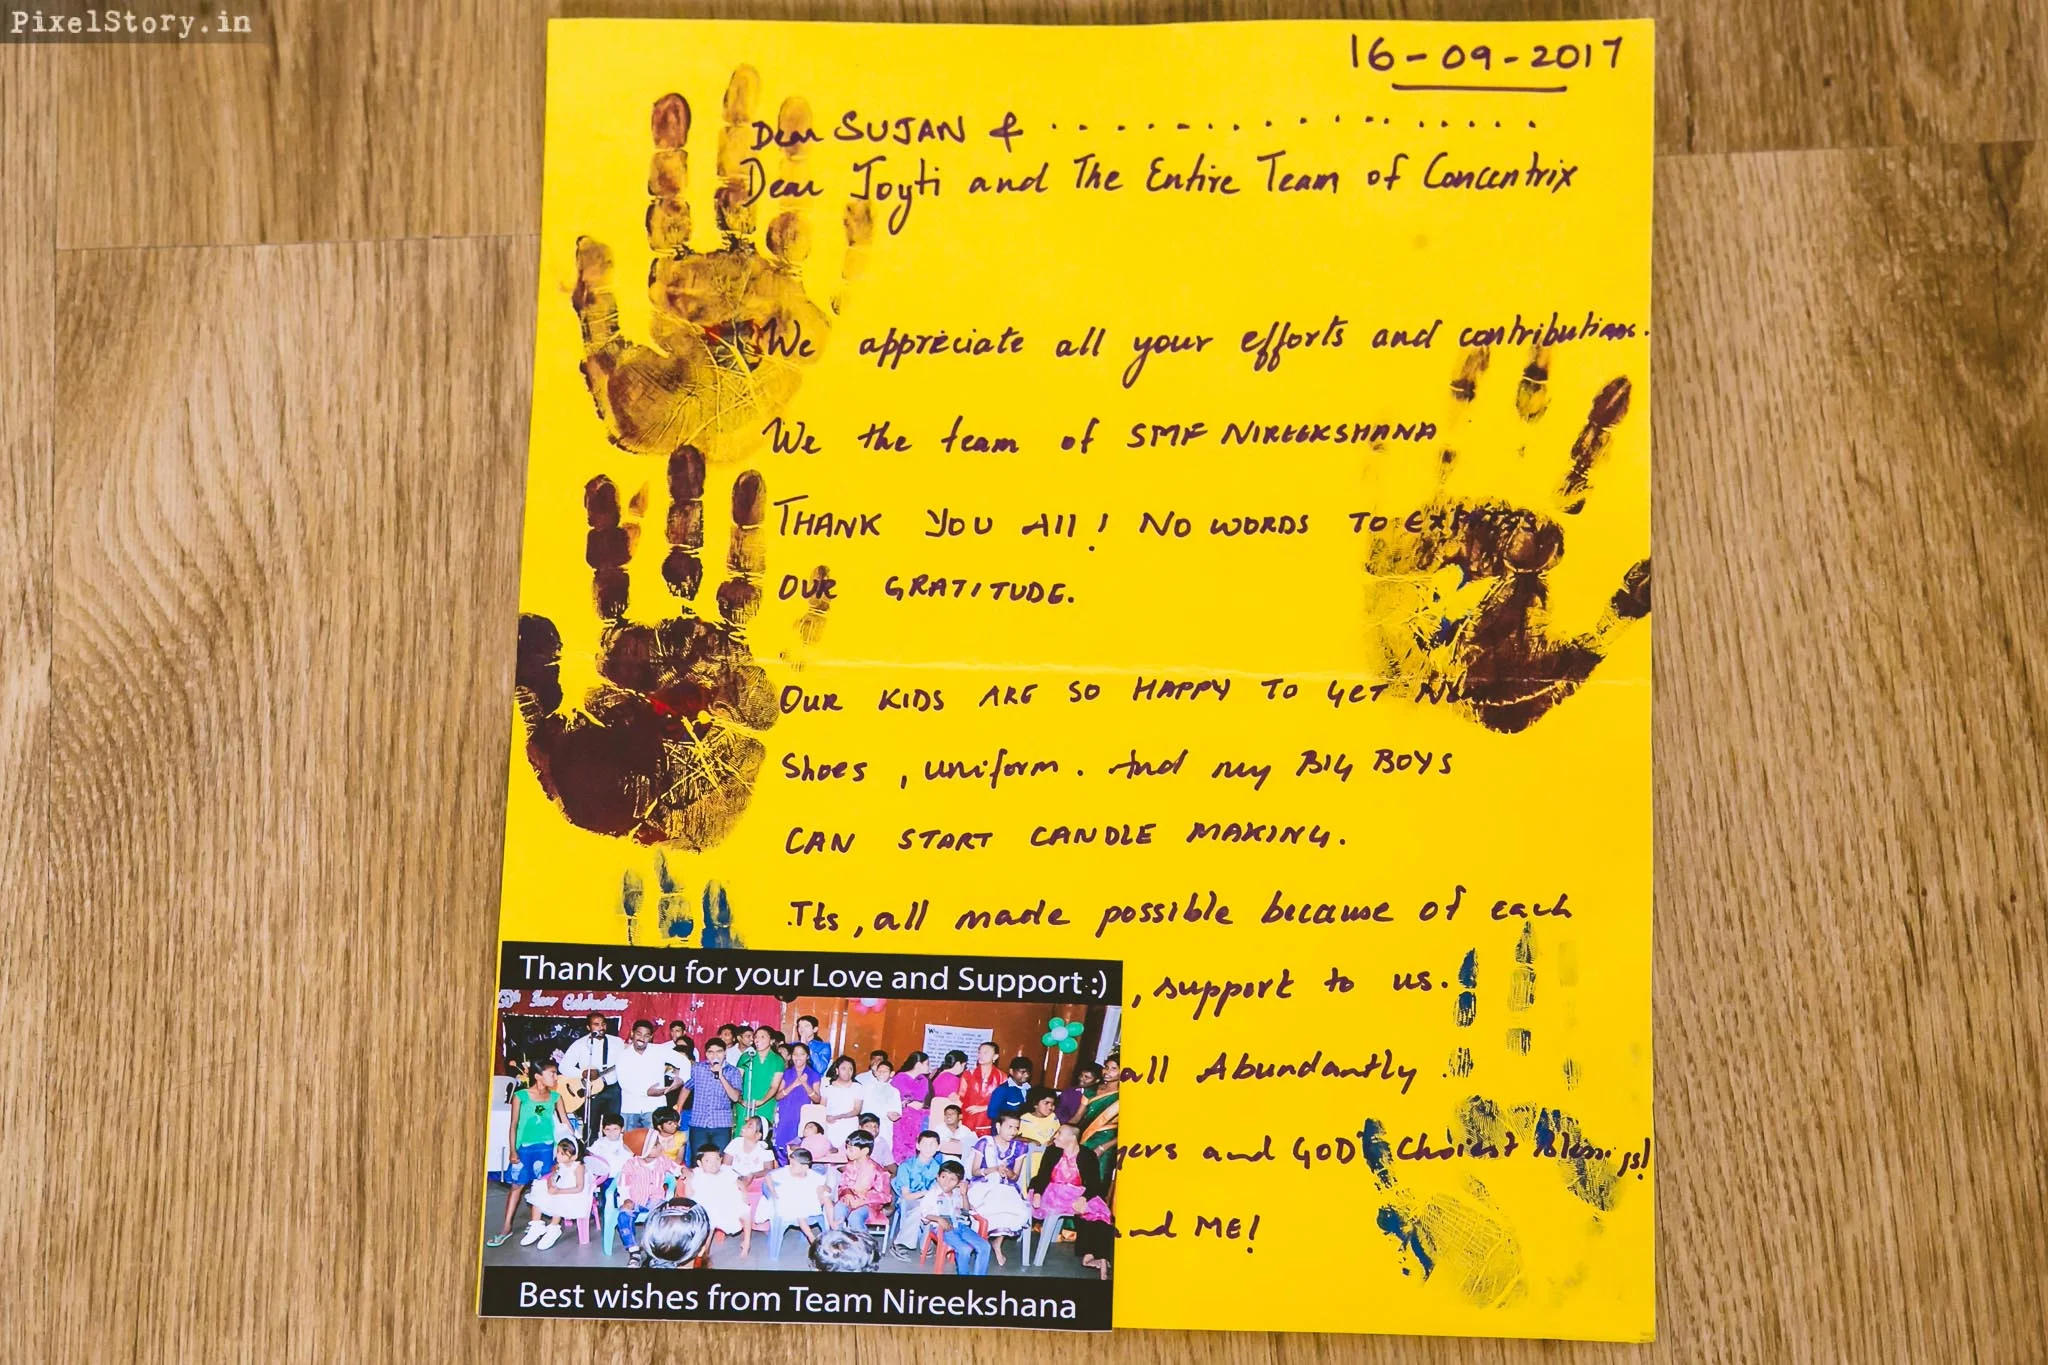 PixelStory.in
16-09-2017
Dear SUJAN & . . . . . . . . . . . . . . . . . .
Dear Joyti and The Entire Team of Concentrix
We appreciate all your efforts and contributions.
We the team of SMF NIREEKSHANA
THANK YOU All! NO WORDS TO
OUR GRATITUDE.
OUR KIDS ARE SO HAPPY TO GET
Shoes, uniform. And my BIG BOYS
CAN START CANDLE MAKING.
Its, all made possible because of each
, support to us.
all Abundantly.
and GOD' Choicest Blessings!
and ME!
Thank you for your Love and Support :)
Year Celebration
Best wishes from Team Nireekshana